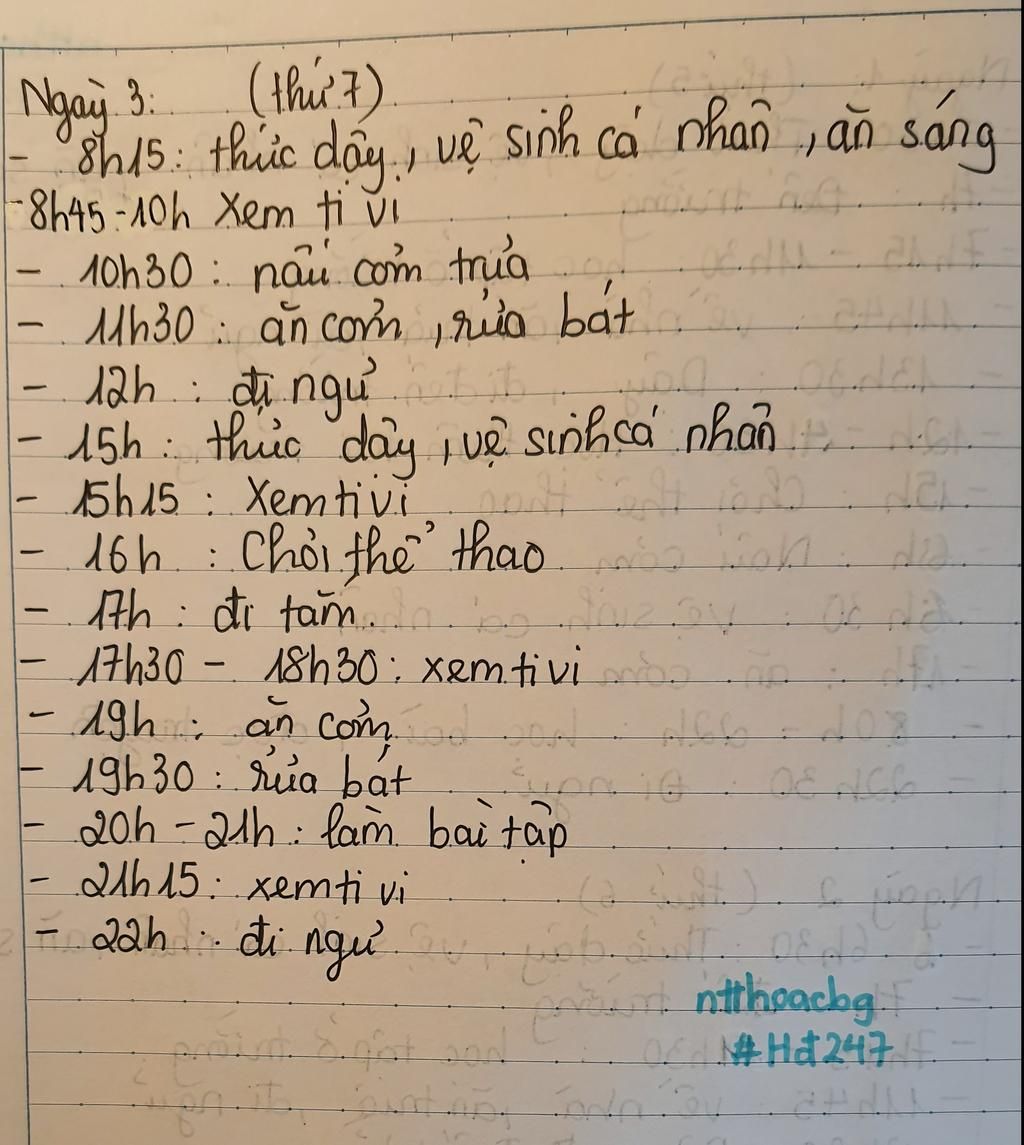 Ngày 3: (thứ 7)
- 8h15: thức dậy, vệ sinh cá nhân, ăn sáng
- 8h45 - 10h Xem ti vi
- 10h30: nấu cơm trưa
- 11h30: ăn cơm, rửa bát
- 12h: đi ngủ
- 15h: thức dậy, vệ sinh cá nhân
- 15h15: Xem ti vi
- 16h: Chơi thể thao
- 17h: đi tắm.
- 17h30 - 18h30: xem ti vi
- 19h: ăn cơm
- 19h30: rửa bát
- 20h - 21h: làm bài tập
- 21h15: xem ti vi
- 22h: đi ngủ
ntthoacbg
#Hđ247